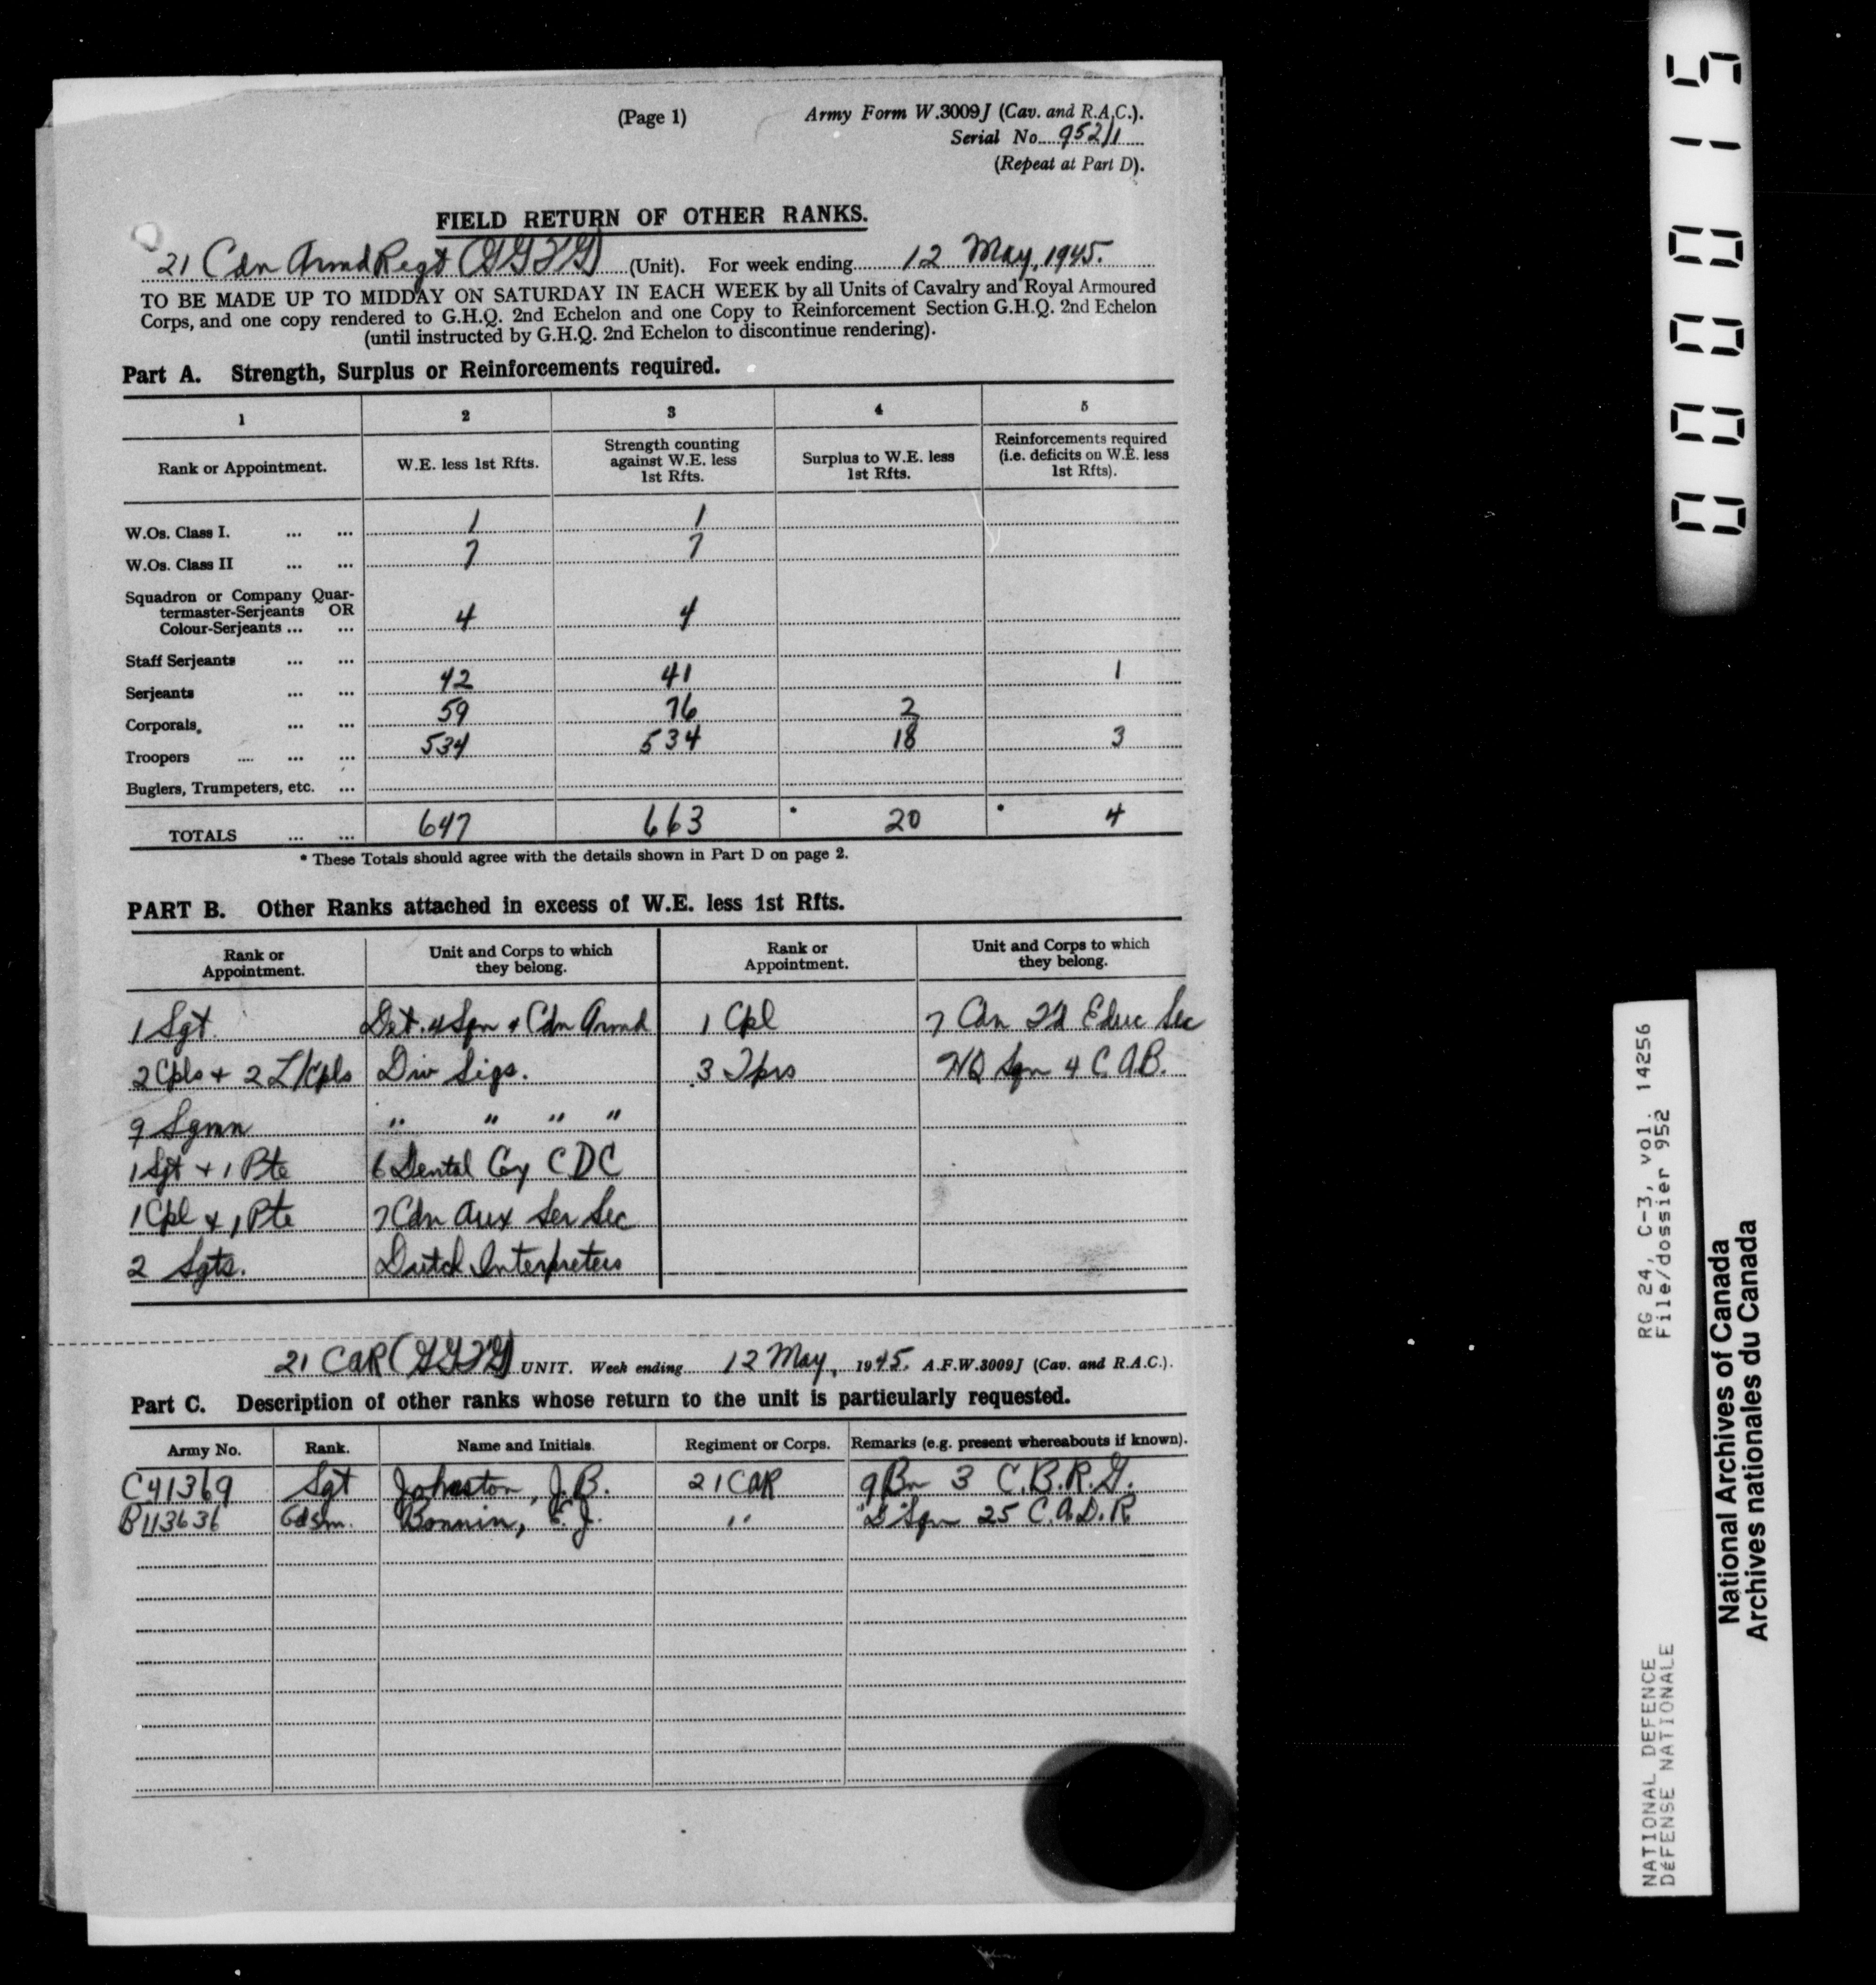 (Page 1)
Army Form W.3009J (Cav. and R.A.C.).
Serial No. 952/1
(Repeat at Part D).
FIELD RETURN OF OTHER RANKS.
21 Cdn Armd Regt (GGFG) (Unit). For week ending 12 May, 1945.
TO BE MADE UP TO MIDDAY ON SATURDAY IN EACH WEEK by all Units of Cavalry and Royal Armoured
Corps, and one copy rendered to G.H.Q. 2nd Echelon and one Copy to Reinforcement Section G.H.Q. 2nd Echelon
(until instructed by G.H.Q. 2nd Echelon to discontinue rendering).
Part A. Strength, Surplus or Reinforcements required.
1 2 3 4 5
Rank or Appointment. W.E. less 1st Rfts. Strength counting against W.E. less 1st Rfts. Surplus to W.E. less 1st Rfts. Reinforcements required (i.e. deficits on W.E. less 1st Rfts).
W.Os. Class I. ... ... 1 1
W.Os. Class II ... ... 7 7
Squadron or Company Quar-
termaster-Serjeants OR
Colour-Serjeants ... ... 4 4
Staff Serjeants ... ...
Serjeants ... ... 42 41 1
Corporals. ... ... 59 76 2
Troopers .... ... ... 534 534 18 3
Buglers, Trumpeters, etc. ...
TOTALS ... ... 647 663 * 20 * 4
* These Totals should agree with the details shown in Part D on page 2.
PART B. Other Ranks attached in excess of W.E. less 1st Rfts.
Rank or Appointment. Unit and Corps to which they belong. Rank or Appointment. Unit and Corps to which they belong.
1 Sgt. Det. 4 Sqn 4 Cdn Armd 1 Cpl 7 Cdn Fd Educ Sec
2 Cpls + 2 L/Cpls Div Sigs. 3 Tprs HQ Sqn 4 C.A.B.
9 Sgmn " " " "
1 Sgt + 1 Pte 6 Dental Coy CDC
1 Cpl + 1 Pte 7 Cdn Aux Ser Sec
2 Sgts. Dutch Interpreters
21 CAR (GGFG) UNIT. Week ending 12 May, 1945. A.F.W.3009J (Cav. and R.A.C.).
Part C. Description of other ranks whose return to the unit is particularly requested.
Army No. Rank. Name and Initials. Regiment or Corps. Remarks (e.g. present whereabouts if known).
C41369 Sgt Johnston, J.B. 21 CAR 9 Bn 3 C.B.R.G.
B113636 Gdsm. Bonnin, E.J. " "D" Sqn 25 C.A.D.R
000015
RG 24, C-3, vol. 14256
File/dossier 952
NATIONAL DEFENCE
DéFENSE NATIONALE
National Archives of Canada
Archives nationales du Canada